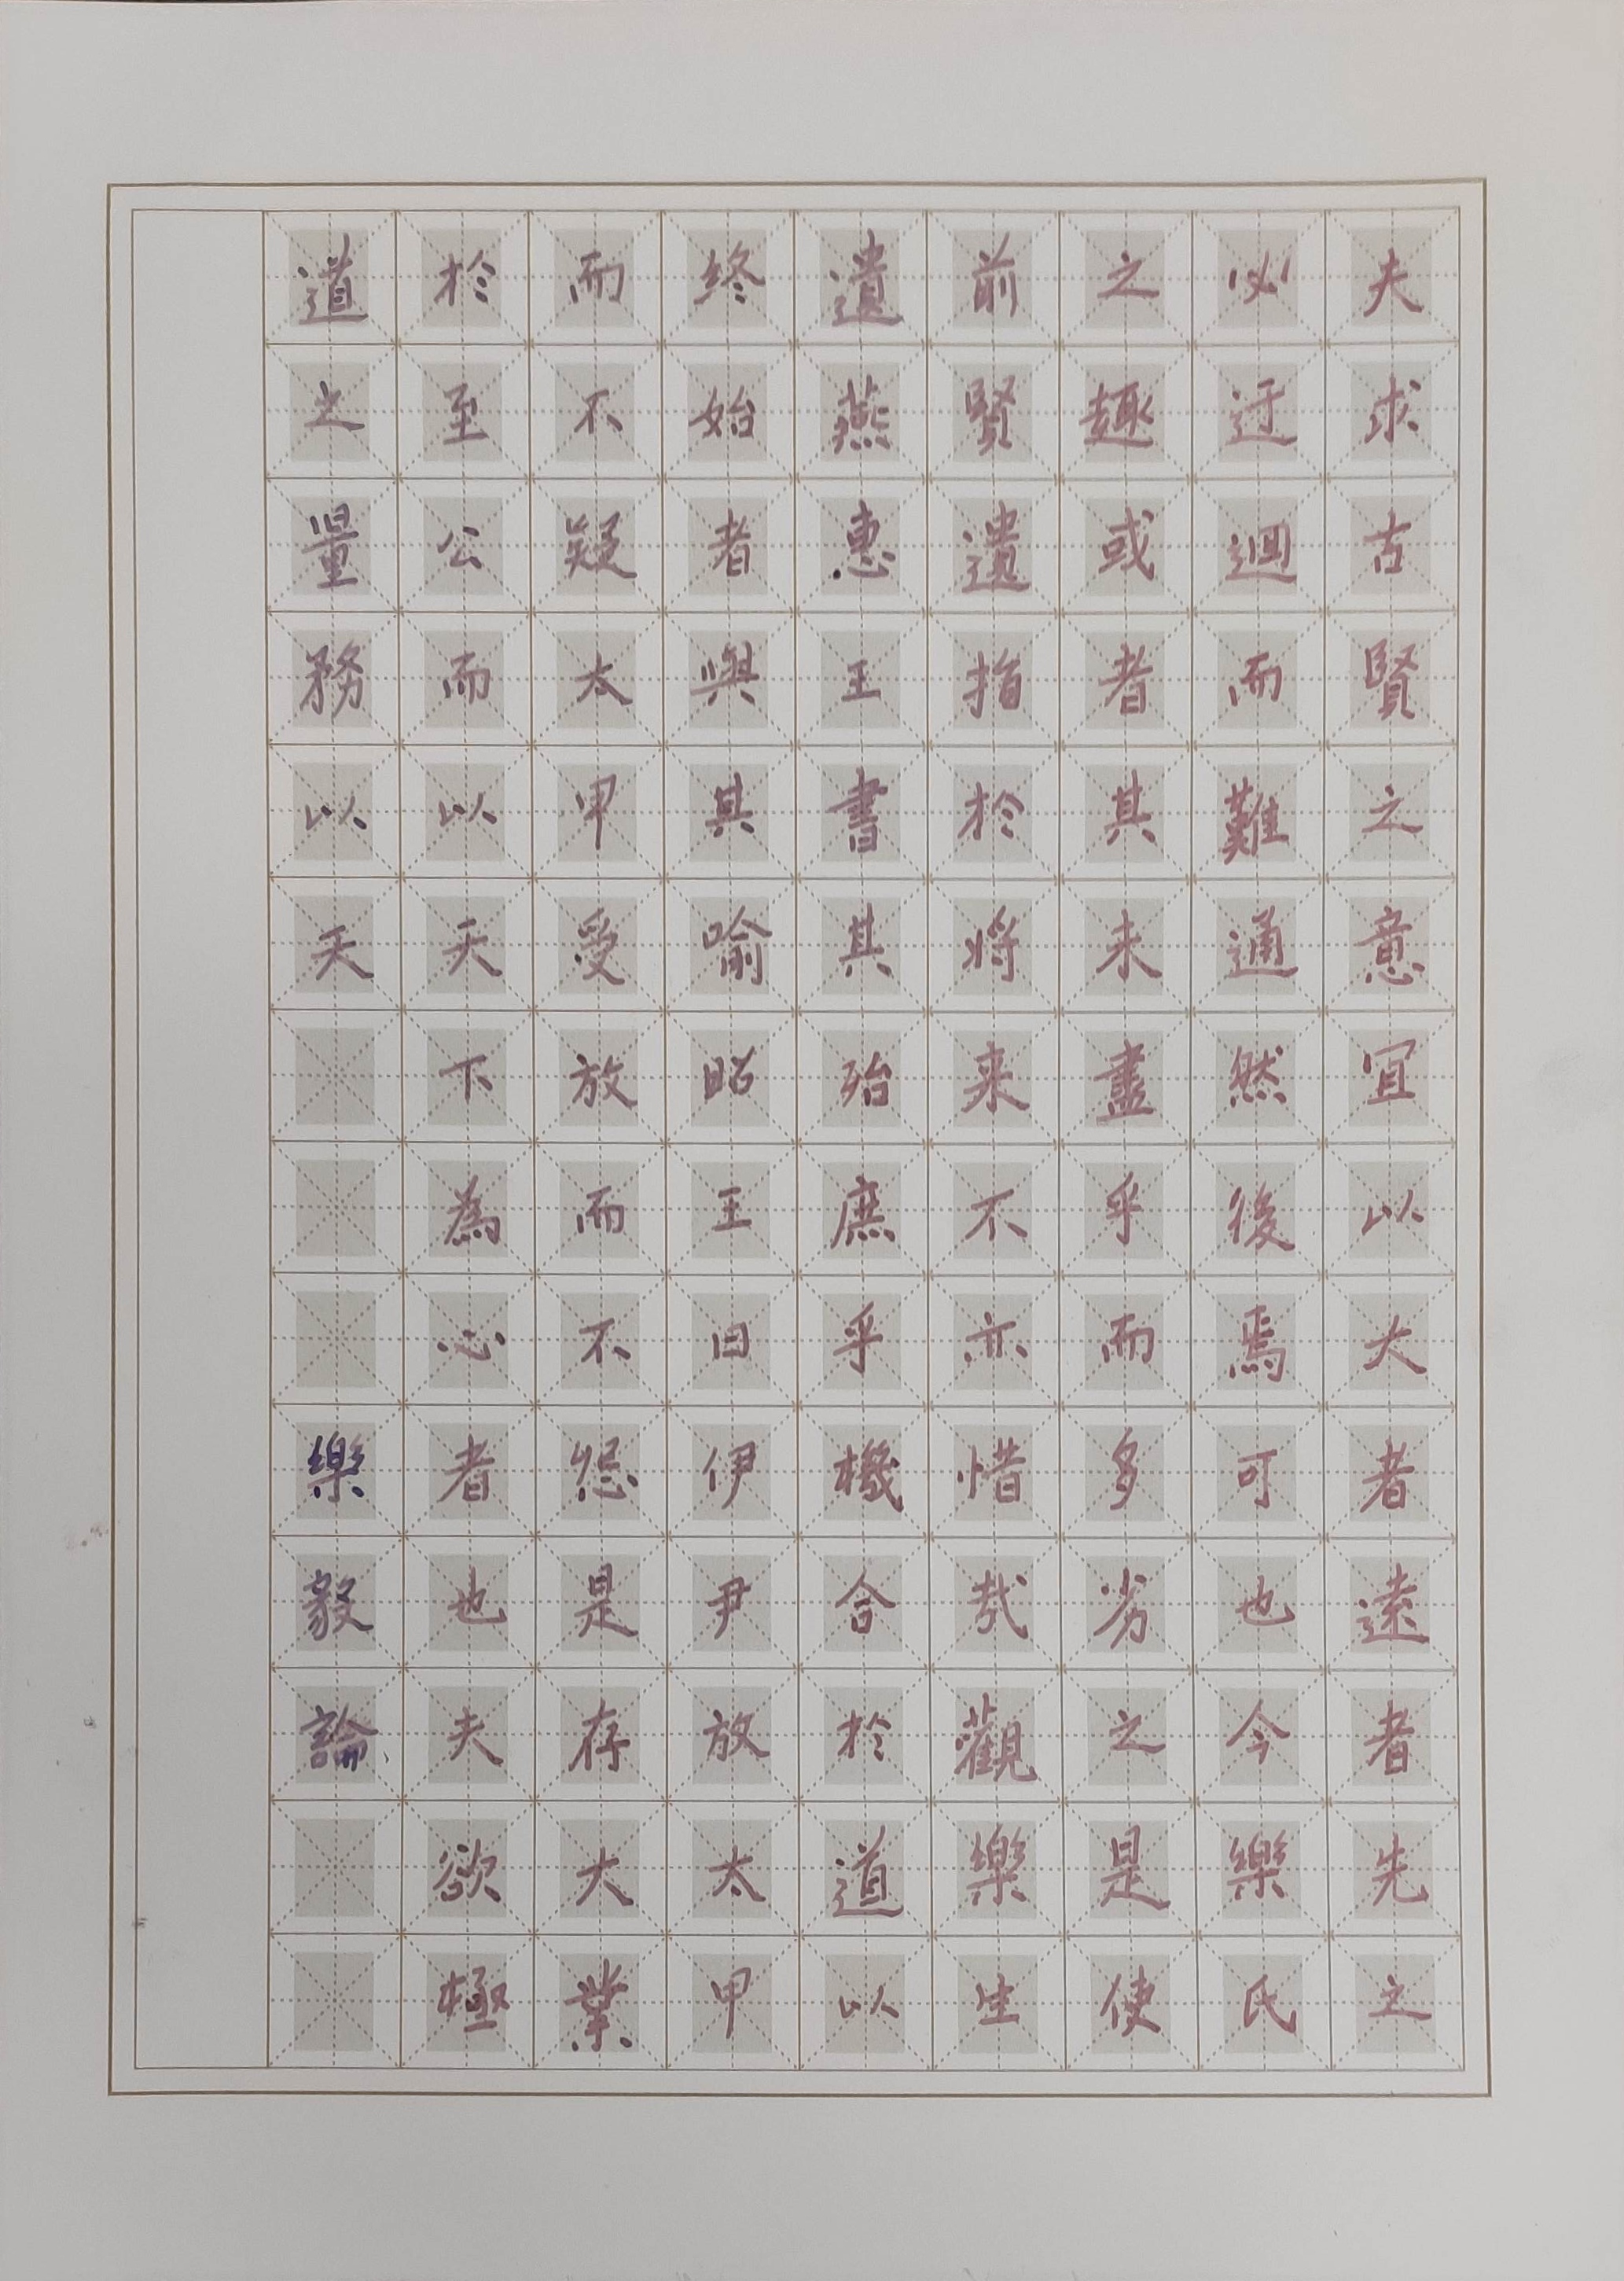 夫求古賢之意宜以大者遠者先之
必迂迴而難通然後焉可也今樂氏
之趣或者其未盡乎而多劣之是使
前賢遺指於將来不亦惜哉觀樂生
遺燕惠王書其殆庶乎機合於道以
終始者與其喻昭王曰伊尹放太甲
而不疑太甲受放而不怨是存大業
於至公而以天下為心者也夫欲極
道之量務以天樂毅論